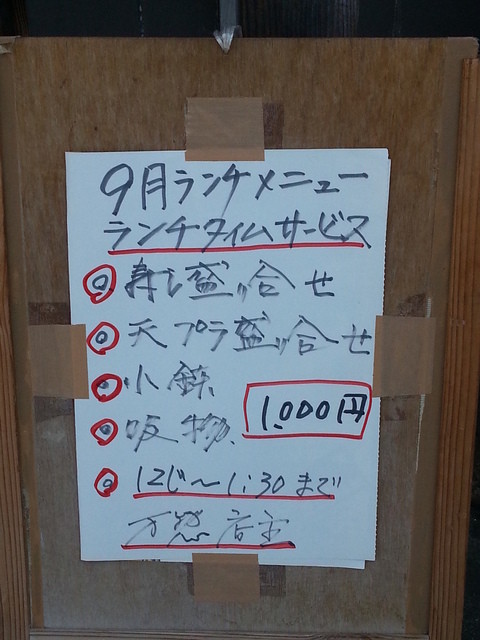 9月ランチメニュー
ランチタイムサービス
寿し盛り合せ
天プラ盛り合せ
小鉢
1,000円
吸物
12じ〜1:30まで
店主